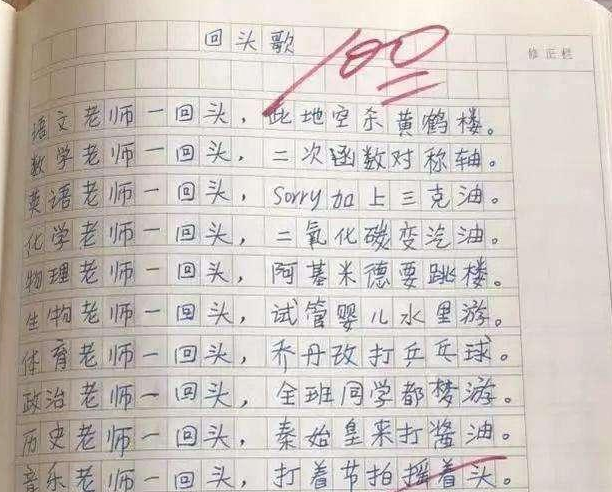 回头歌
100
修正栏
语文老师一回头，此地空余黄鹤楼。
数学老师一回头，二次函数对称轴。
英语老师一回头，Sorry加上三克油。
化学老师一回头，二氧化碳变汽油。
物理老师一回头，阿基米德要跳楼。
生物老师一回头，试管婴儿水里游。
体育老师一回头，乔丹改打乒乓球。
政治老师一回头，全班同学都梦游。
历史老师一回头，秦始皇来打酱油。
音乐老师一回头，打着节拍摇着头。